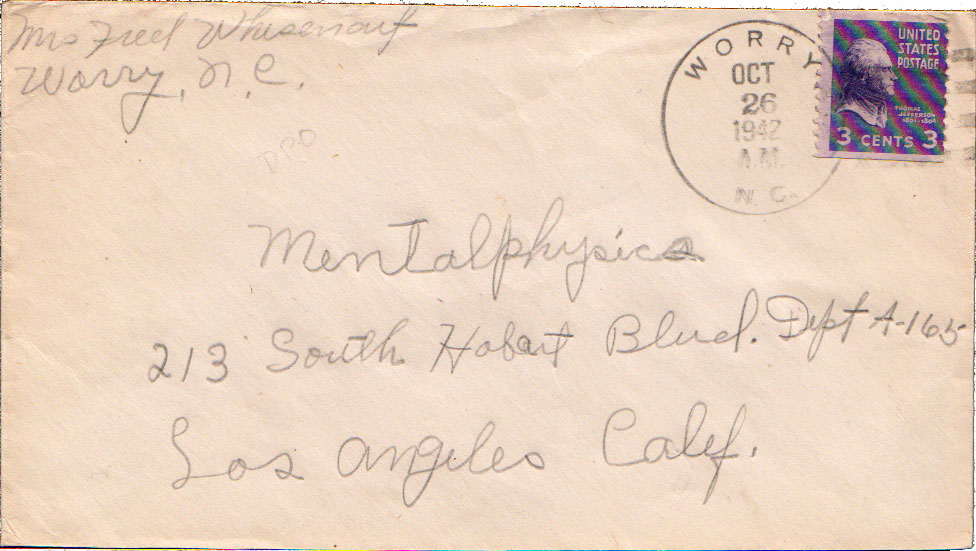 Mrs Fred Whisenant
Worry, N.C.
WORRY
OCT
26
1942
A.M.
N.C.
UNITED
STATES
POSTAGE
THOMAS
JEFFERSON
1801-1809
3 CENTS 3
DPO
Mentalphysics
213 South Hobart Blvd. Dept A-165
Los Angeles Calif.